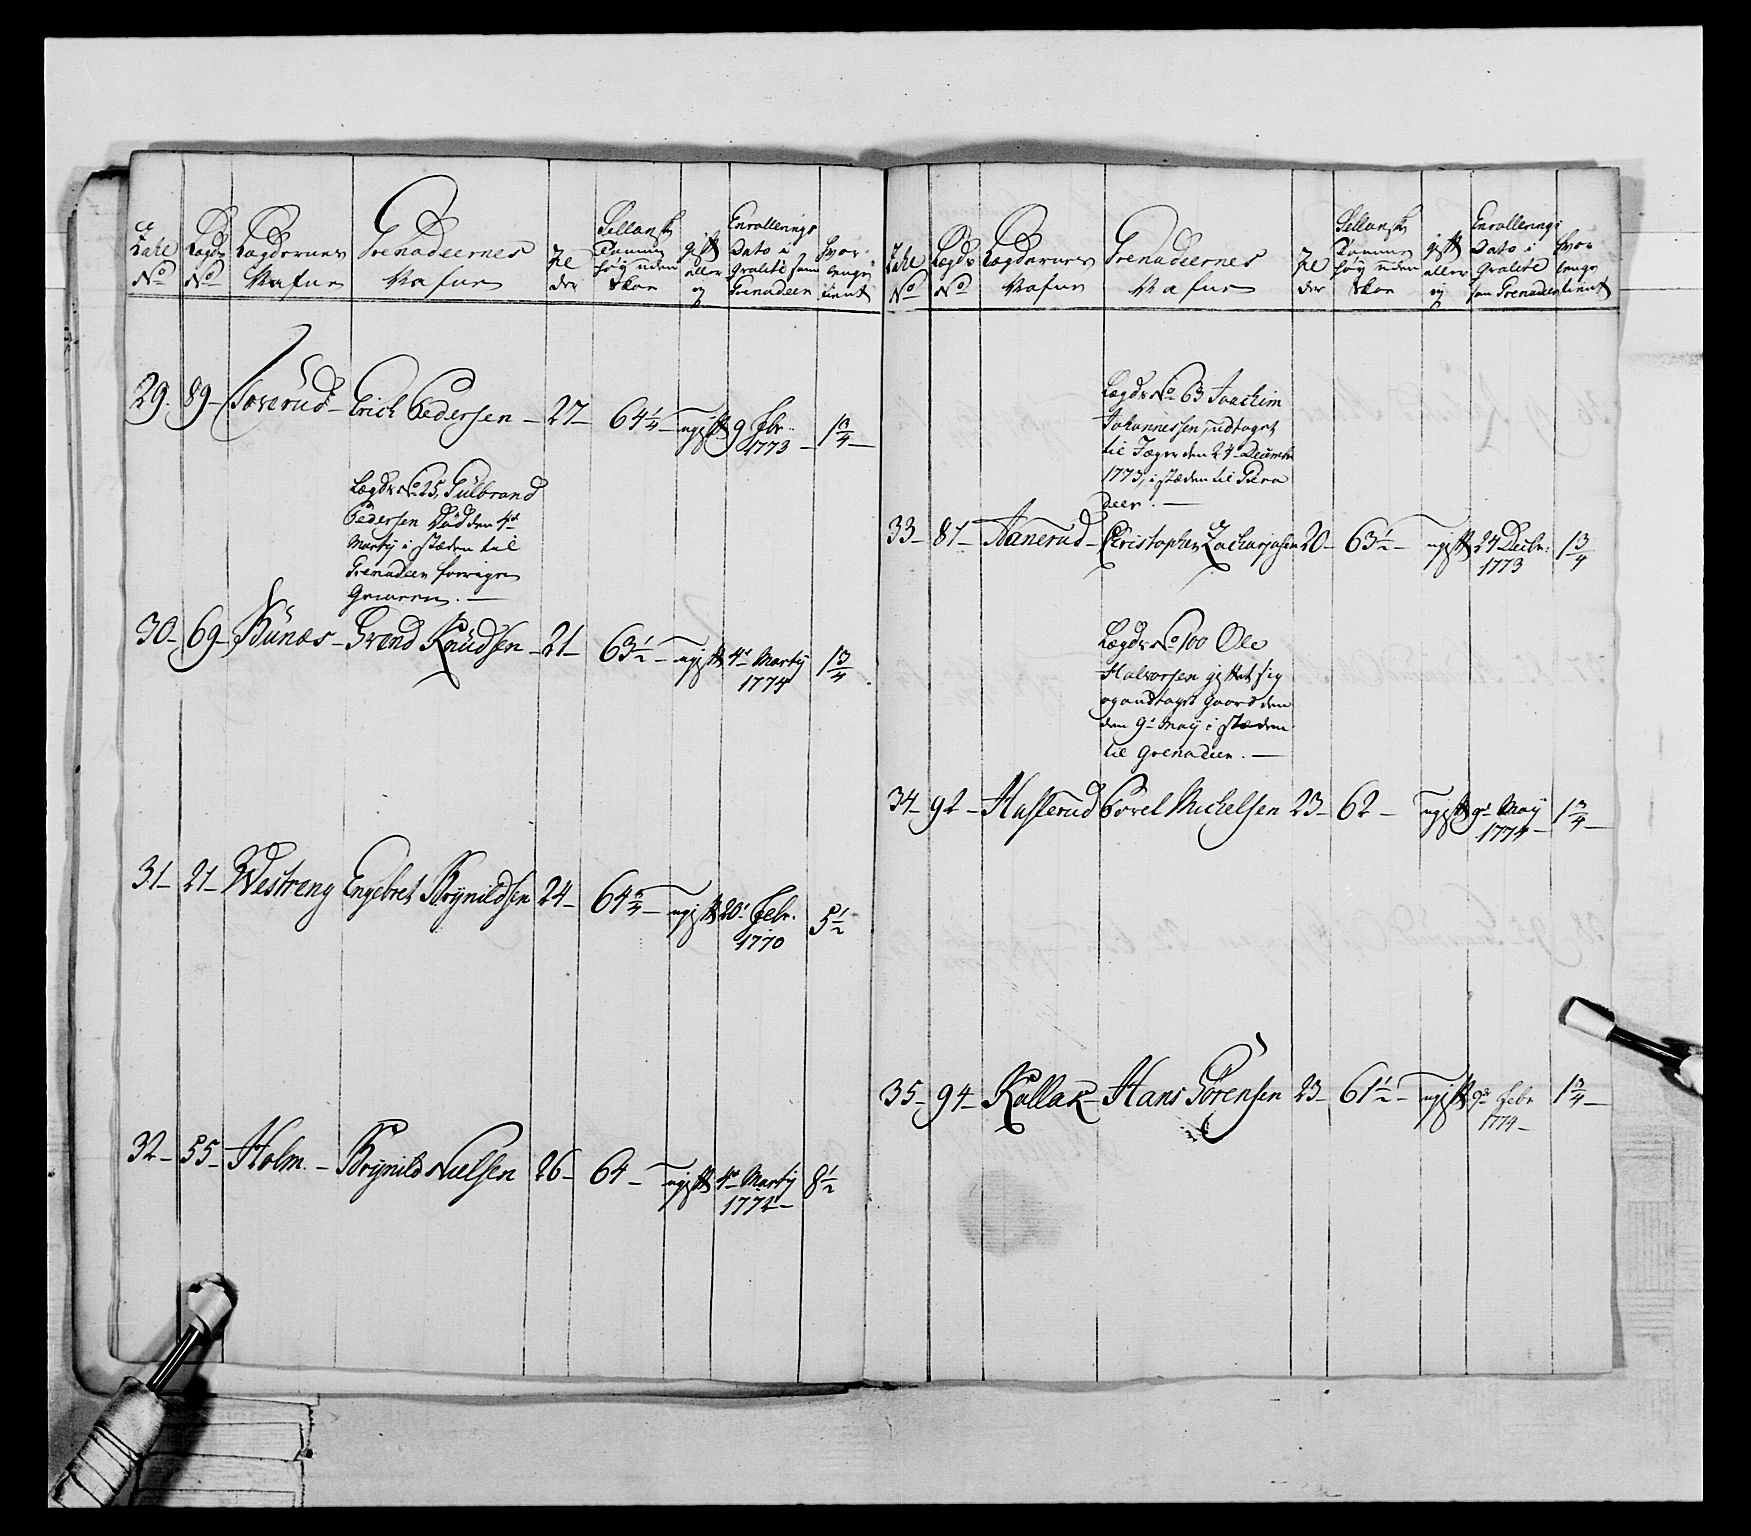 Tahl No
Lægds No
Lægdernes Nafne
Grenadeernes Nafne
Al der
Sellandsk Tommer høy uden Skoe
gift eller ey
Enrollerings Dato i Qvalité som Grenadeer
hvor længe tient
29. 89 – Soverud – Erich Pedersen – 27 – 64 1/4 – ugift 9 Febr. 1773 – 1 3/4 –
Lægds No 25, Gulbrand
Pedersen Død den 4de
Marty i stæden til
Grenadeer forrige
30 – 69 – Bunæs – Svend Knudsen – 21 – 63 1/2 – ugift 4de Marty 1774 1 3/4
31 – 21 – Westreng Engebret Brynildsen 24 – 64 3/4 – ugift 20de Febr. 1770 5 1/2
32 – 55 – Holm – Brynild Nielsen 26 – 64 – ugift 4de Marty 1774 – 8 1/2
Tahl No
Lægds No
Lægdernes Nafne
Grenadeernes Nafne
Al der
Sellandsk Tommer høy uden Skoe
gift eller ey
Enrollerings Dato i Qvalité som Grenadeer
hvor længe tient
Lægds No 63 Joachim
Johannessen, udtaget
til Jæger den 24de Decembr
1773, i stæden til Grena
deer. –
33 – 87 – Aanerud – Christopher Zacharjasen 20 – 63 1/2 – ugift 24 Decbr. 1773 1 3/4
Lægds No 100 Ole
Halvorsen giftet sig
og andtaget Gaard den
den 9de May i stæden
til Grenadeer. –
34 – 92 – Hafterud Povel Michelsen 23 – 62 – ugift 9de May 1774 – 1 3/4 –
35 – 94 – Kollak – Hans Sörensen 23 – 61 1/2 – ugift 9de Febr 1774 – 1 3/4 –